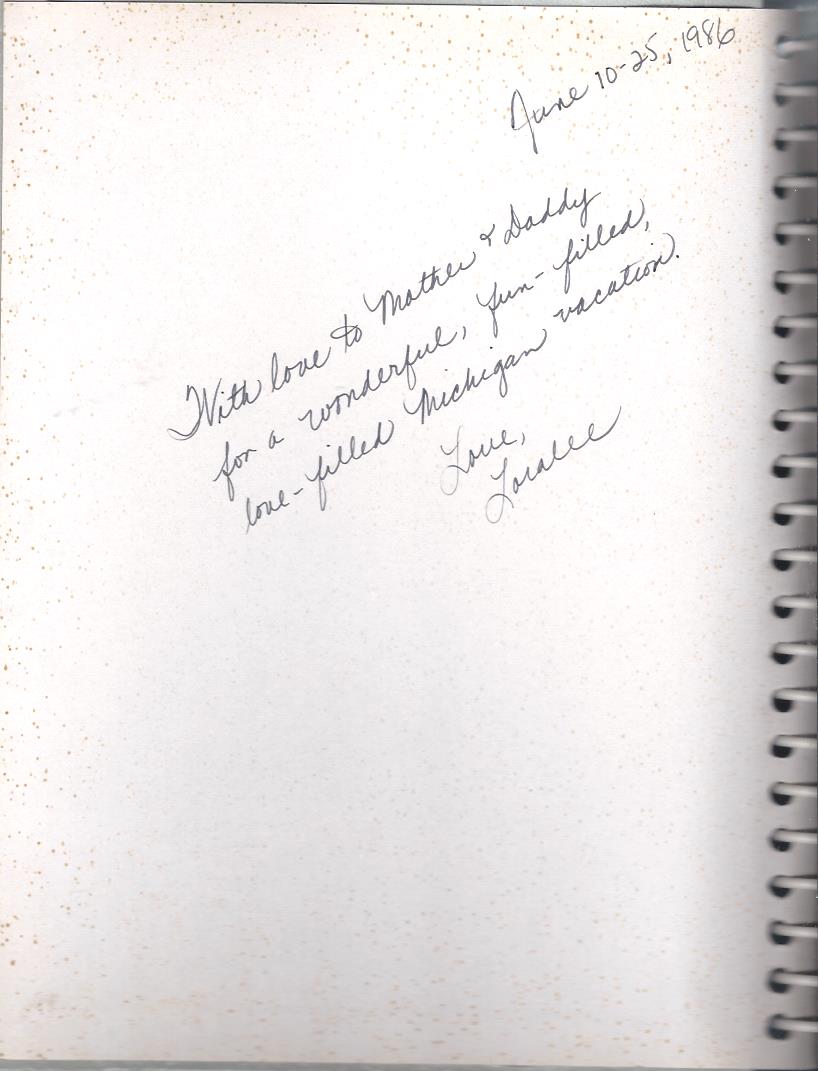 June 10-25, 1986
With love to Mother & Daddy
for a wonderful, fun-filled,
love-filled Michigan vacation.
Love,
Loralee